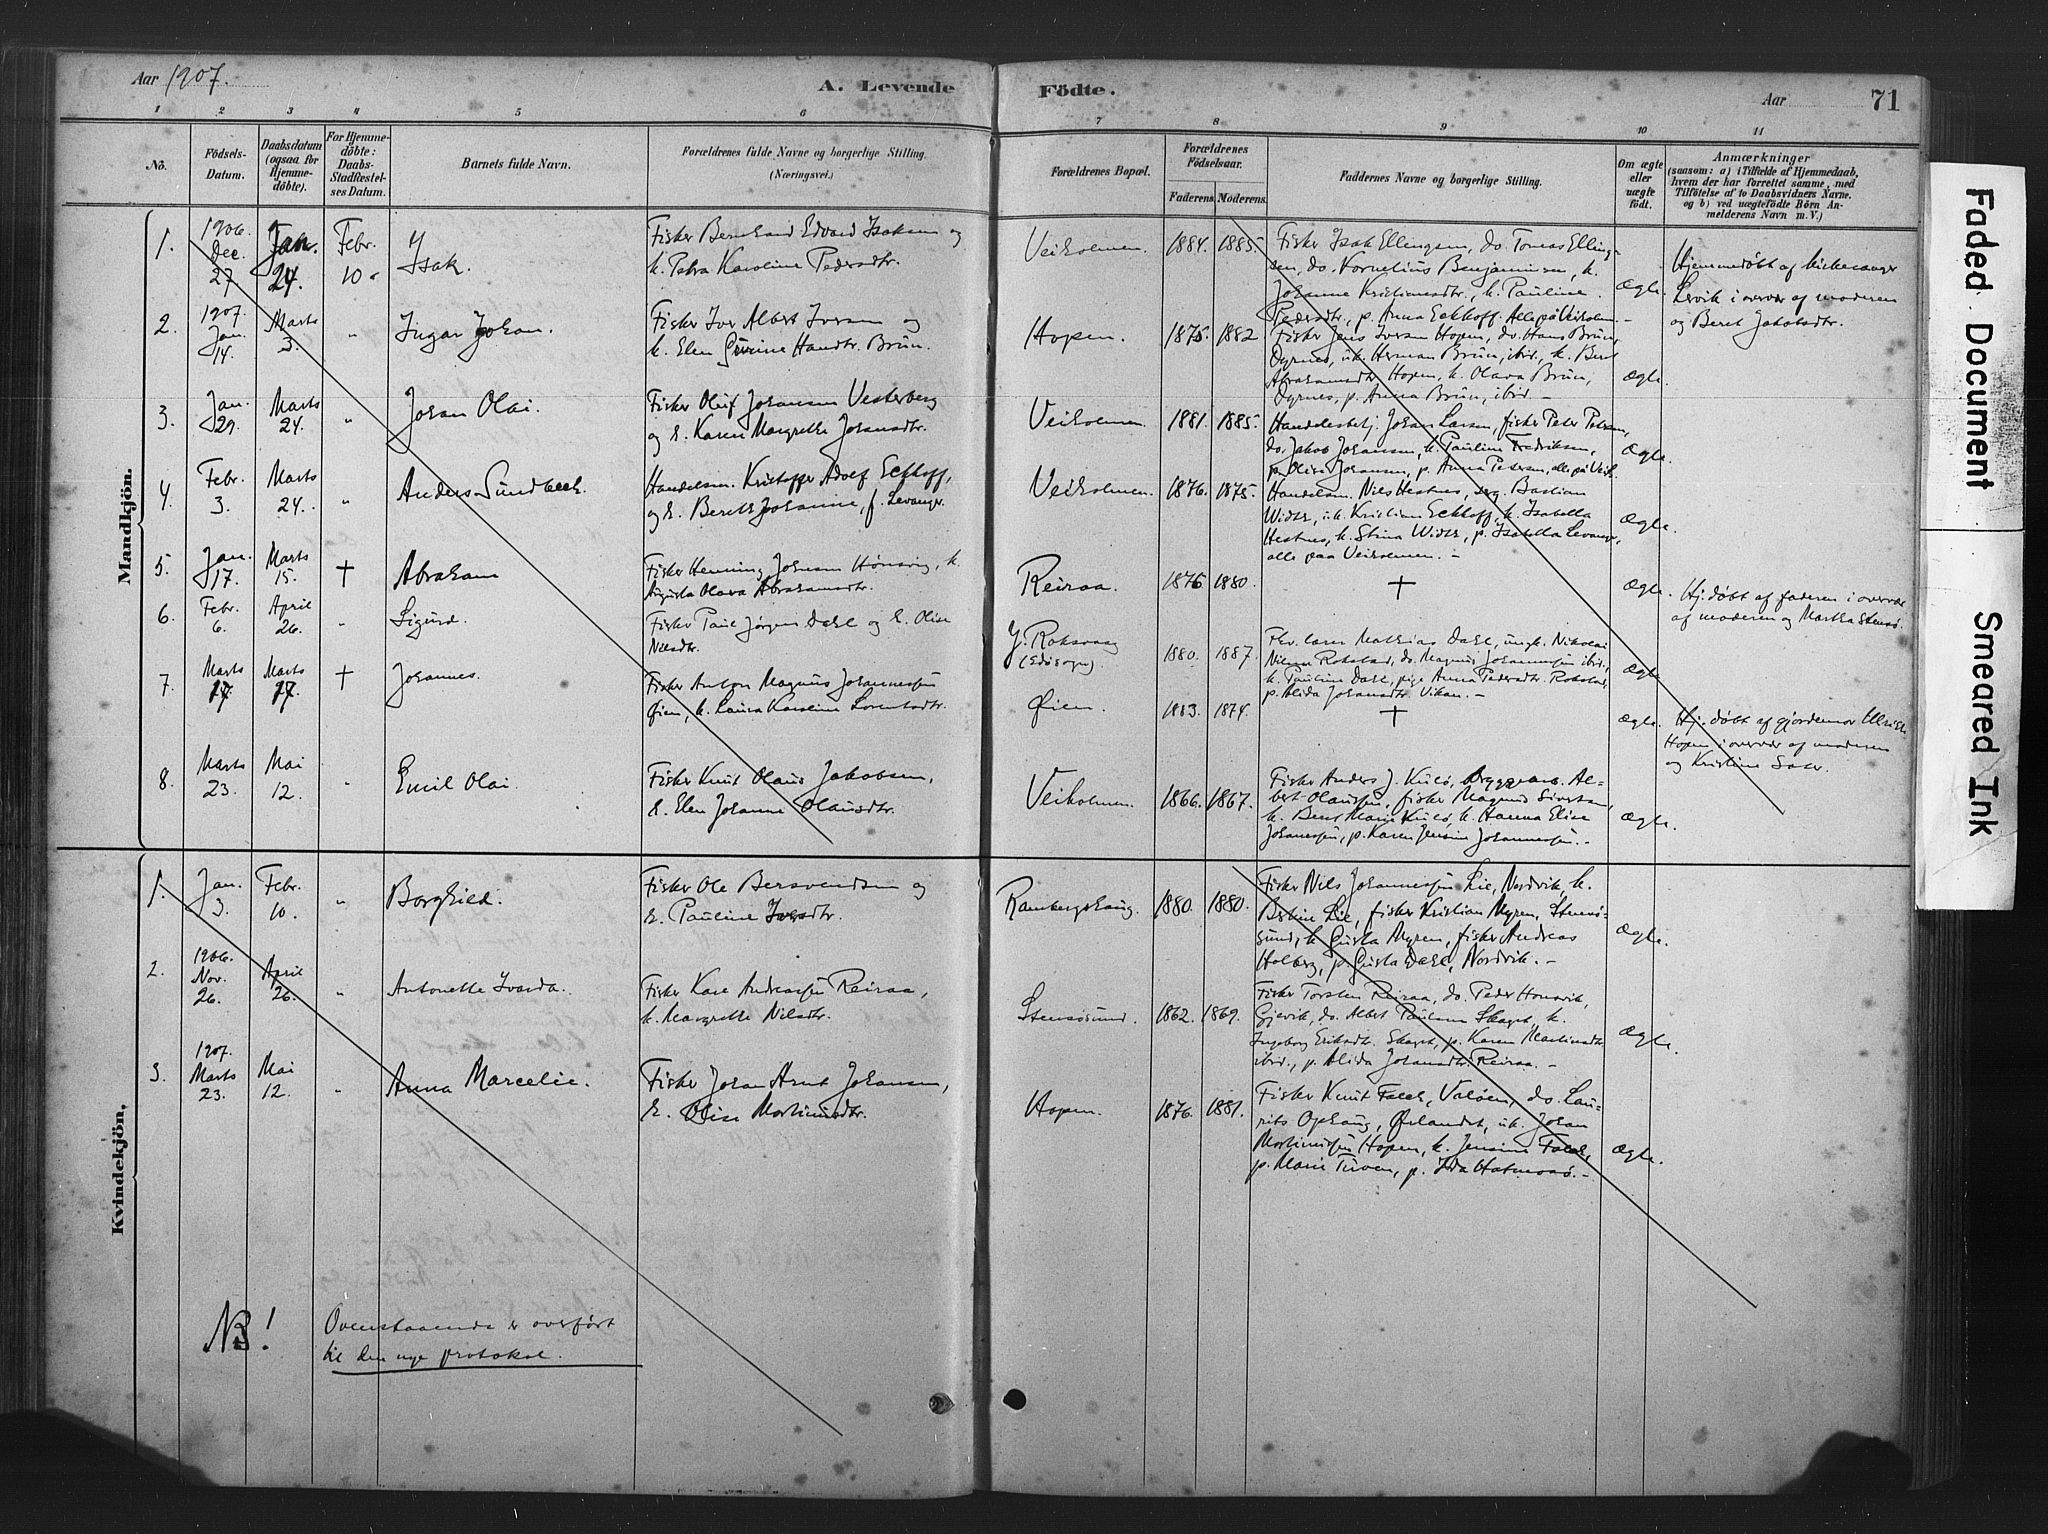 Aar 1907.
A. Levende
Födte.
Aar
71
1 2 3 4 5 6 7 8 9 10 11
Nö.
Födsels-Datum.
Daabsdatum (ogsaa for Hjemme-döbte).
For Hjemme-döbte: Daabs-Stadfæstel-ses Datum.
Barnets fulde Navn.
Forældrenes fulde Navne og borgerlige Stilling.
(Næringsvei.)
Forældrenes Bopæl.
Forældrenes Födselsaar.
Faderens. Moderens.
Faddernes Navne og borgerlige Stilling.
Om ægte eller uægte födt.
Anmærkninger
(saasom: a) i Tilfælde af Hjemmedaab,
hvem der har forrettet samme, med
Tilföielse af to Daabsvidners Navne.
og b) ved uægtefödte Börn An-
melderens Navn m.V.)
Mandkjön.
1. 1906. Dec. 27 Jan. 24. Febr. 10. Isak.
Fisker Bernhard Edvard Isaksen og
k. Petra Karoline Pedersdtr.
Veiholmen. 1884. 1885.
Fisker Isak Ellingsen, do. Tomas Elling-
sen, do. Kornelius Benjaminsen, k.
Johanne Kristiansdtr., k. Pauline
Pedersdtr., p. Anna Eckhoff. Alle på Veiholm. -
Ægte.
Hjemmedøbt af kirkesanger
Lervik i overvær af moderen
og Beret Jakobsdtr.
2. 1907. Jan. 14. Marts 3. " Ingar Johan.
Fisker Iver Albert Iversen og
k. Elen Hansdtr. Brün.
Hopen. 1875. 1882
Fisker Jens Iversen Hopen, do. Hans Brün,
Dyrnes, uk. Herman Brün, ibid., k. Beret
Abrahamsdtr. Hopen, k. Olava Brün,
Dyrnes, p. Anna Brün, ibid. -
Ægte.
3. Jan. 29. Marts 24. " Johan Olai.
Fisker Oluf Johansen Vesterberg
og k. Karen Margrethe Johansdtr.
Veiholmen. 1881. 1885.
Handelsbetj. Johan Larsen, fisker Peter Petersen,
do. Jakob Johansen, k. Pauline Fredriksen,
p. Olina Johansen, p. Anna Petersen, alle på Veih.
Ægte.
4. Febr. 3. Marts 24. " Anders Sundbech.
Handelsm. Kristoffer Adolf Eckhoff,
og k. Beret Johanne, f. Levange.
Veiholmen. 1876. 1875.
Handelsm. Nils Hestnes, Bastian
Width, uk. Kristian Eckhoff, k. Isabella
Hestnes, k. Stina Width, p. Isabella Levange,
alle paa Veiholmen. -
Ægte.
5. Jan. 17. Marts 15. † Abraham
Fisker Henning Johnsen Hønsvig, k.
Augusta Olava Abrahamsdtr.
Reiraa. 1876 1880. †
Ægte.
Hj. døbt af faderen i overvær
af moderen og Martha Stensø.
6. Febr. 6. April 26. " Sigurd.
Fisker Paul Jørgen Dahl og k. Olise
Nilsdtr.
Y. Roksvaag
(Edøsogn). 1880. 1887.
Lars Mathias Dahl, ungk. Nikolai
Nilsen Rokstad, do. Magnus Johannessen ibid.
k. Pauline Dahl, pige Anna Pedersdtr. Rokstad,
p. Alida Johansdtr. Vikan. -
Ægte
7. Marts 17. Marts 17. † Johannes.
Fisker Anton Magnus Johannessen
Øien, k. Laura Karoline Lorentsdtr.
Øien. 1883. 1874. †
Ægte.
Hj. døbt af gjordemor Ulrich
Hopen i overvær af moderen
og Kristine Sæter.
8. Marts 23. Mai 12. " Emil Olai.
Fisker Knut Olaus Jakobsen,
k. Elen Johanne Olausdtr.
Veiholmen. 1866. 1867.
Fisker Anders J. Kulø, bryggearb. Al-
bert Olaussen, fisker Magnus Sivertsen,
k. Beret Marie Kulø, k. Hanna Elise
Johannessen, p. Karen Jensine Johannessen. -
Ægte.
Kvindekjön.
1. Jan. 3. Febr. 10. " Borghild.
Fisker Ole Bersvendsen og
k. Pauline Iversdtr.
Rambergshaug. 1880. 1880.
Fisker Nils Johannessen Lie, Nordvik, k.
Lie, fisker Kristian Myren, Stensø-
sund, k. Gusta Myren, fisker Andreas
Holberg, p. Gusta Dahl, Nordvik. -
Ægte.
2. 1906. Nov. 26. April 26. " Antonette Ivarda.
Fisker Kase Andreassen Reiraa,
k. Margrethe Nilsdtr.
Stensøsund. 1862. 1869.
Fisker Torsten Reiraa, do. Peder Honsvik,
Gjevik, do. Albert Paulsen Skaget, k.
Ingeborg Eriksdtr. Skaget, p. Karen Martinsdtr.
ibid., p. Alida Johansdtr. Reiraa. -
Ægte.
3. 1907. Marts 23. Mai 12. " Anna Marcelie.
Fisker Johan Arnt Johansen,
k. Olise Mortinusdtr.
Hopen. 1876. 1881.
Fisker Knut Falch, Valøen, do. Lau-
rits Ophaug, Ørlandet, uk. Johan
Mortinussen Hopen, k. Jensine Falch,
p. Marie Tuven, p. Ida Hatmosø. -
Ægte.
NB!
Ovenstaaende er overført
til den nye protokol.
Faded Document
Smeared Ink